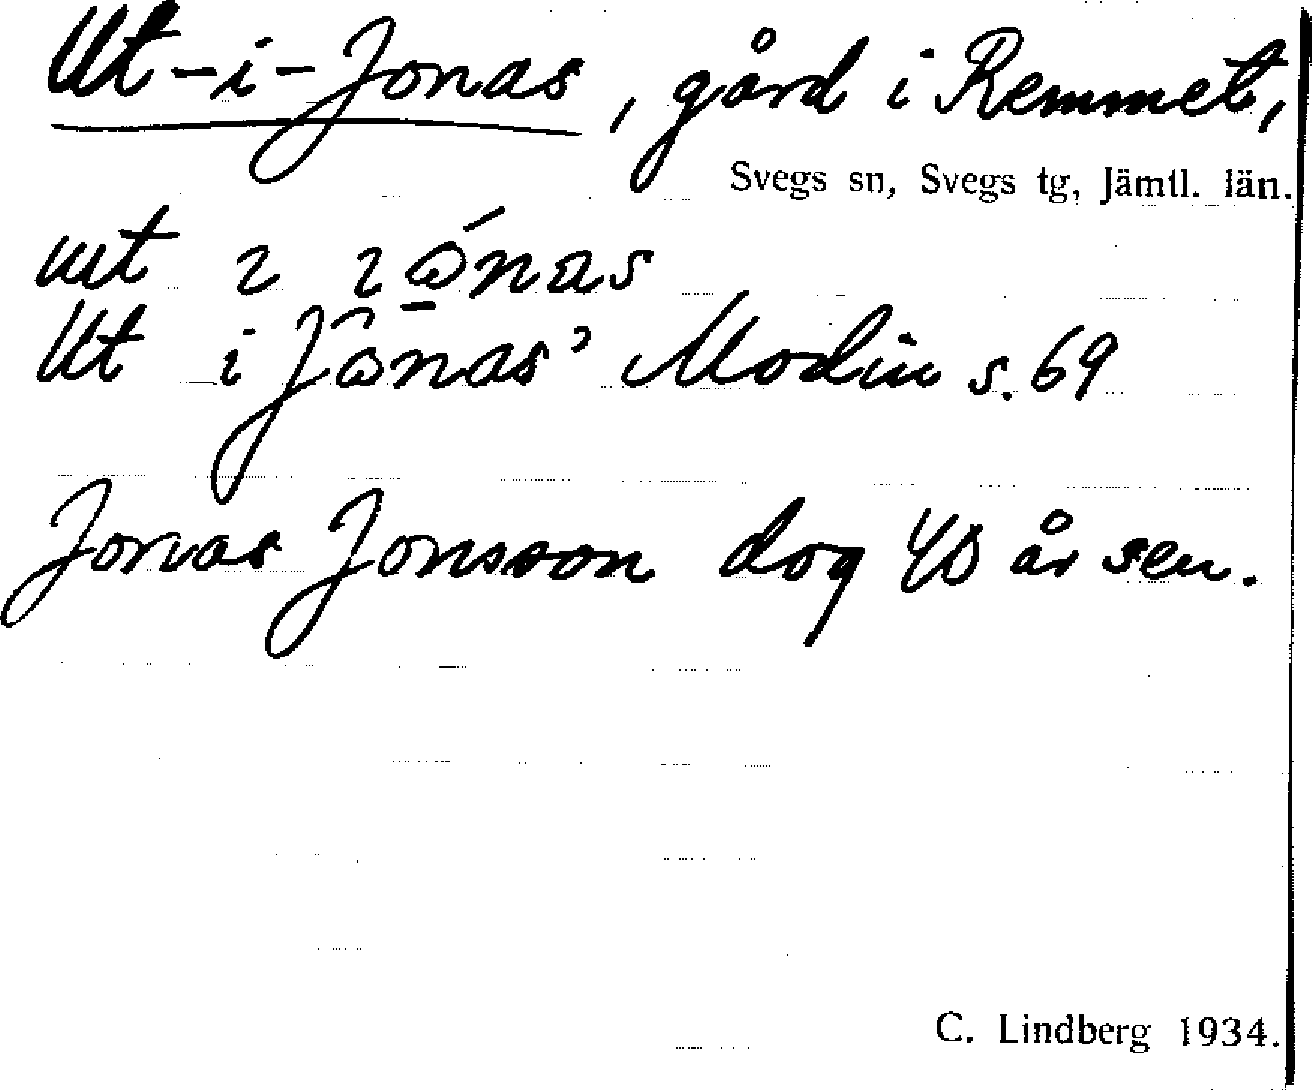 Ut-i-Jonas, gård i Remmet,
Svegs sn, Svegs tg, Jämtl. län.
Ut i Jônas' Modin s. 69
Jonas Jonsson dog 40 år sen.
C. Lindberg 1934.